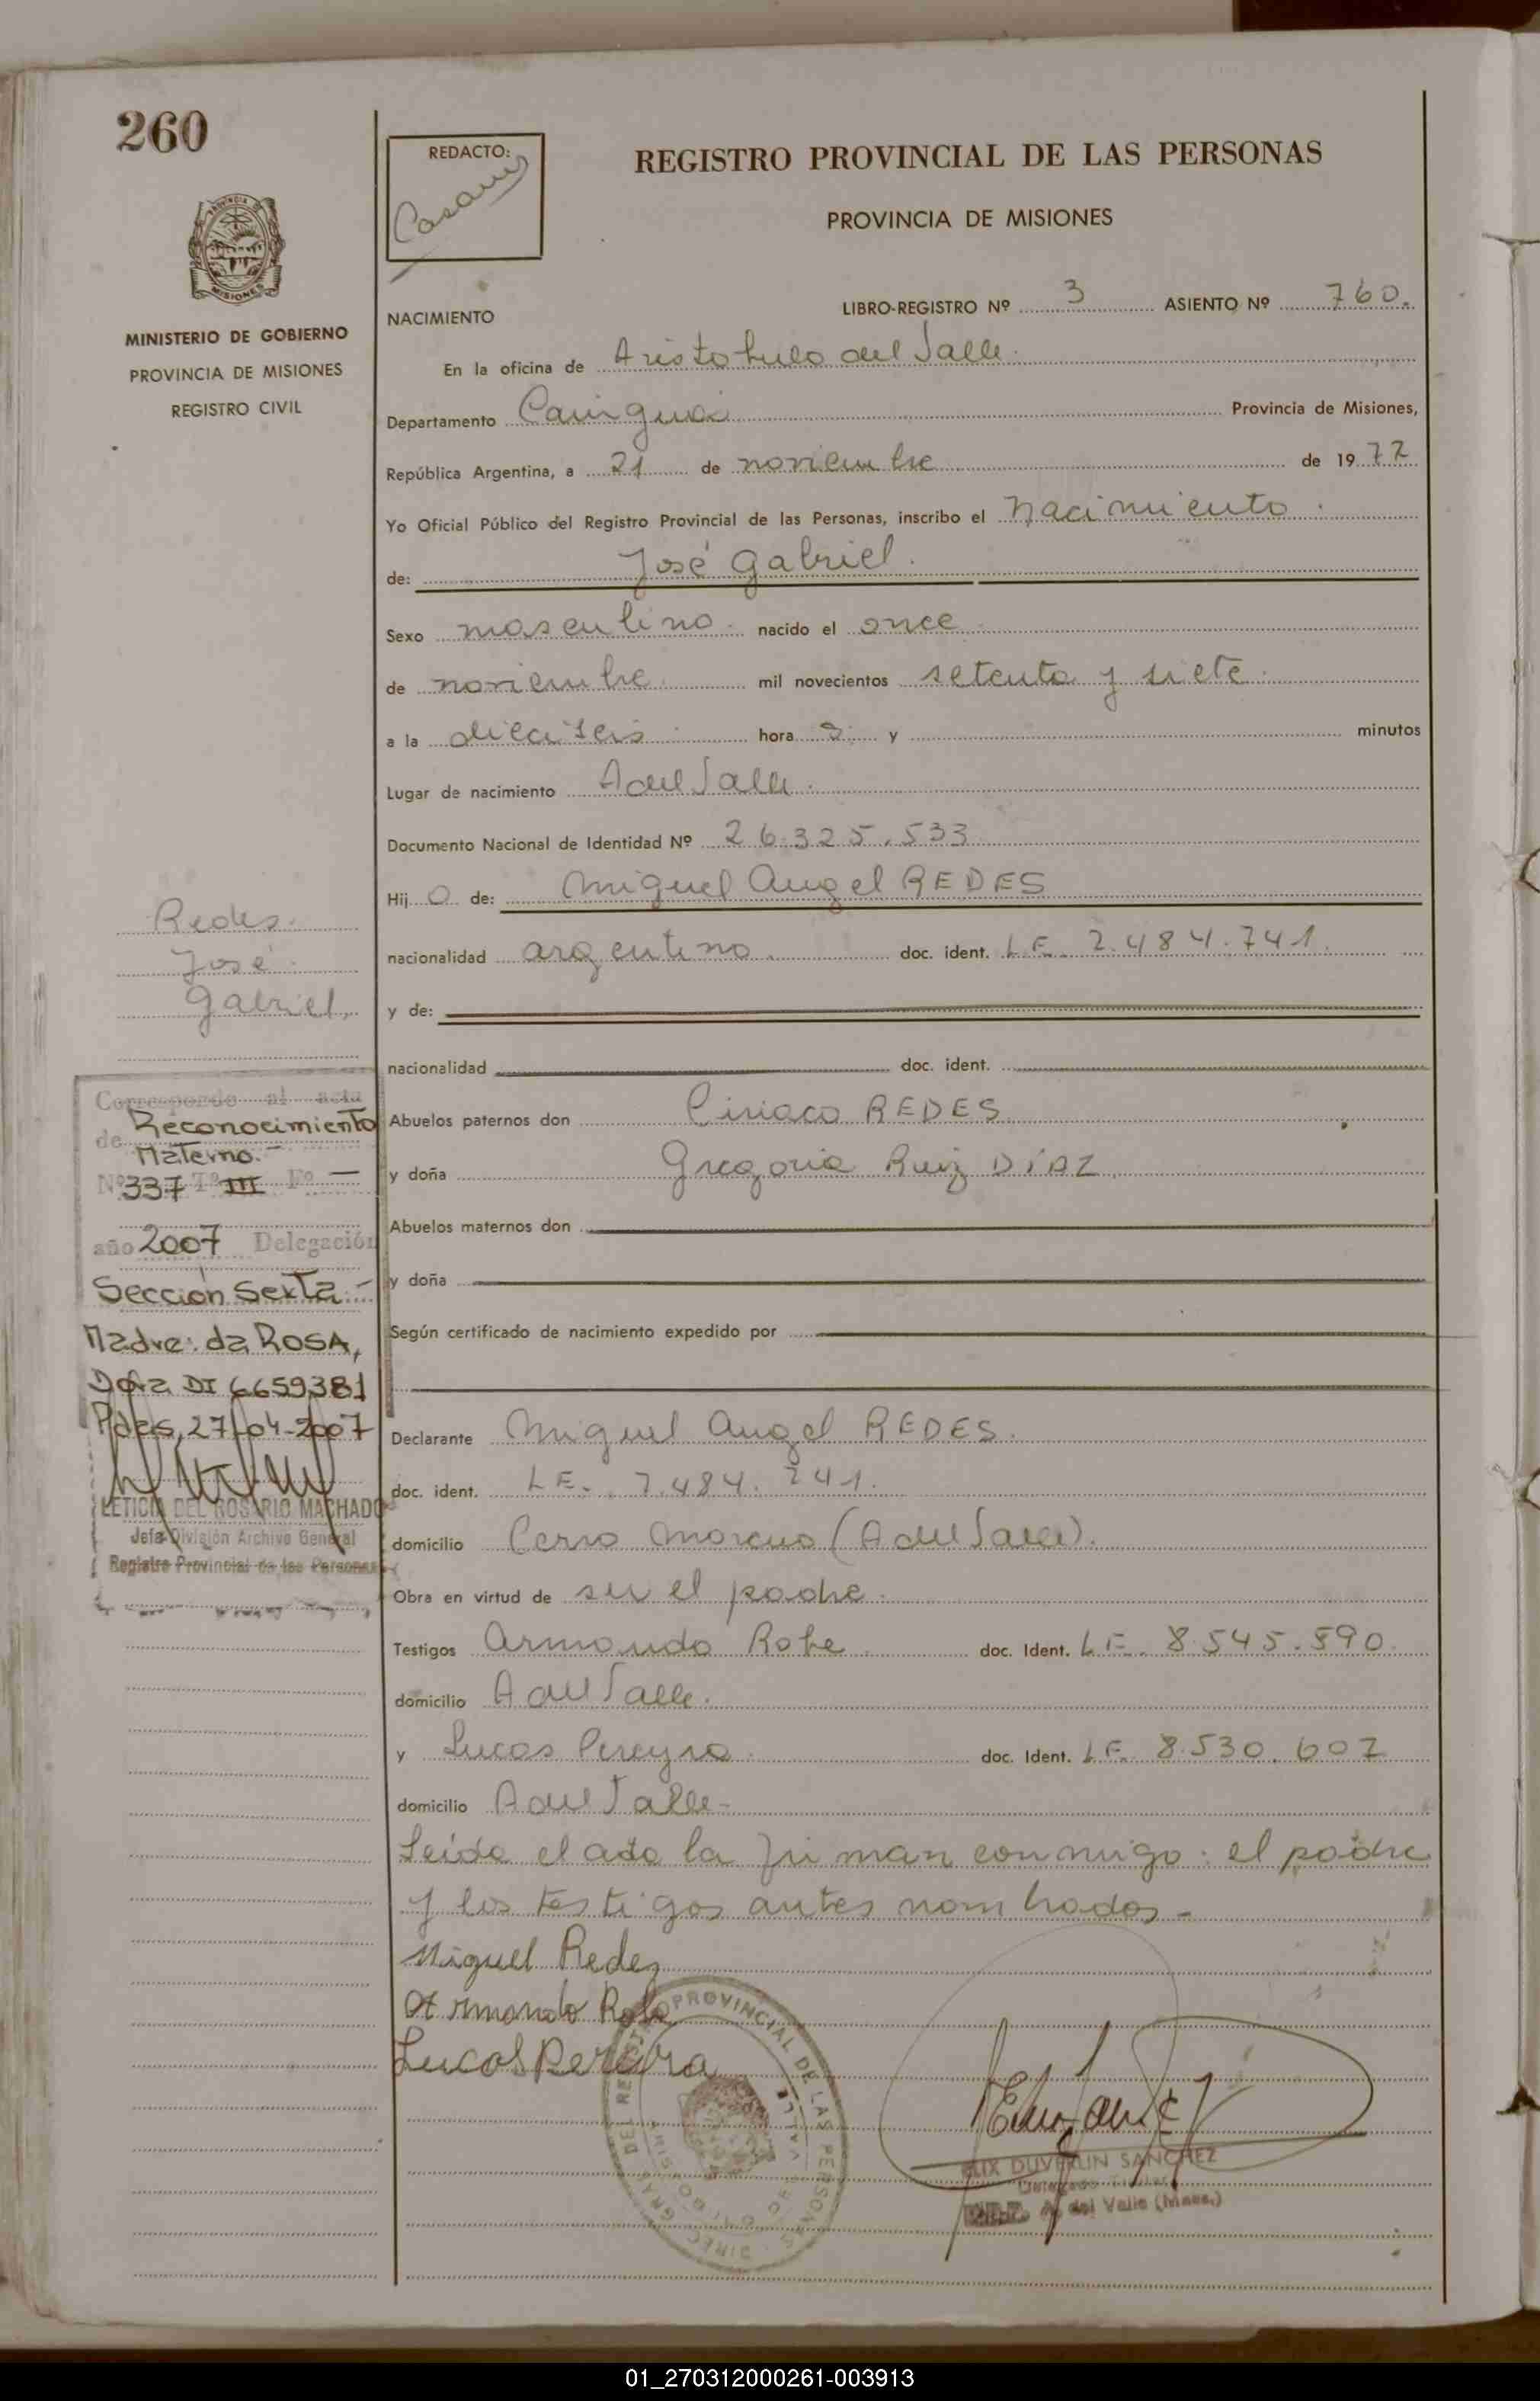 260
REDACTO:
REGISTRO PROVINCIAL DE LAS PERSONAS
PROVINCIA DE MISIONES
MISIONES
MINISTERIO DE GOBIERNO
PROVINCIA DE MISIONES
REGISTRO CIVIL
NACIMIENTO LIBRO-REGISTRO Nº 3 ASIENTO Nº 760.
En la oficina de Aristobulo del Valle.
Departamento Cainguas Provincia de Misiones,
República Argentina, a 21 de noviembre de 1977
Yo Oficial Público del Registro Provincial de las Personas, inscribo el Nacimiento.
de: José Gabriel.
Sexo masculino. nacido el once
de noviembre mil novecientos setenta y siete.
a la dieciseis hora s. y minutos
Lugar de nacimiento A del Valle.
Documento Nacional de Identidad Nº 26.325.533
Hij o de: Miguel Angel REDES
nacionalidad argentino. doc. ident. L.E. 7.484.741.
y de:
nacionalidad doc. ident.
Abuelos paternos don Ciriaco REDES
y doña Gregoria Ruiz DíAZ
Abuelos maternos don
y doña
Según certificado de nacimiento expedido por
Declarante Miguel Angel REDES.
doc. ident. L.E. 7.484.741.
domicilio Cerro Moreno (A del Valle).
Obra en virtud de ser el padre.
Testigos Armando Robe doc. Ident. L.E. 8.545.590
domicilio A del Valle.
y Lucas Pereyra doc. Ident. L.E. 8.530.607
domicilio A del Valle-
Leída el acta la firman conmigo: el padre
y los testigos antes nombrados-
Miguel Redez
Armando Robe
Lucas Pereyra
Redes
José
Gabriel,
Corresponde al acta
de Reconocimiento
Materno.-
Nº 337 Tº III Fº —
año 2007 Delegación
Sección Sexta.-
Madre: da ROSA,
DI 6659381
Pdas, 27-04-2007
LETICIA DEL ROSARIO MACHADO
Jefa División Archivo General
Registro Provincial de las Personas
DUVERLIN SANCHEZ
A. del Valle (Mnes.)
01_270312000261-003913